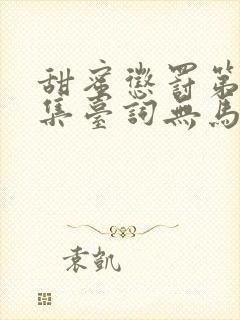 甜蜜懲罰第
集臺詞無馬
袁凱